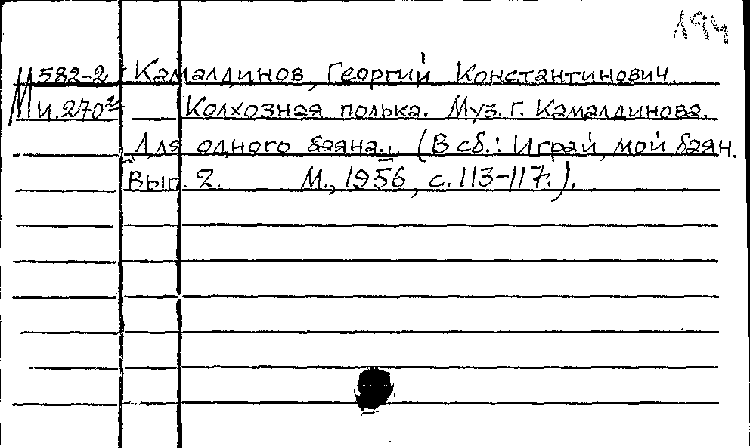 194
М 582-2 Камалдинов, Георгий Константинович.
И.270 Колхозная полька. Муз. Г. Камалдинова.
Для одного баяна. (В сб.: Играй, мой баян.
Вып. 2. М., 1956, с. 113-117.).